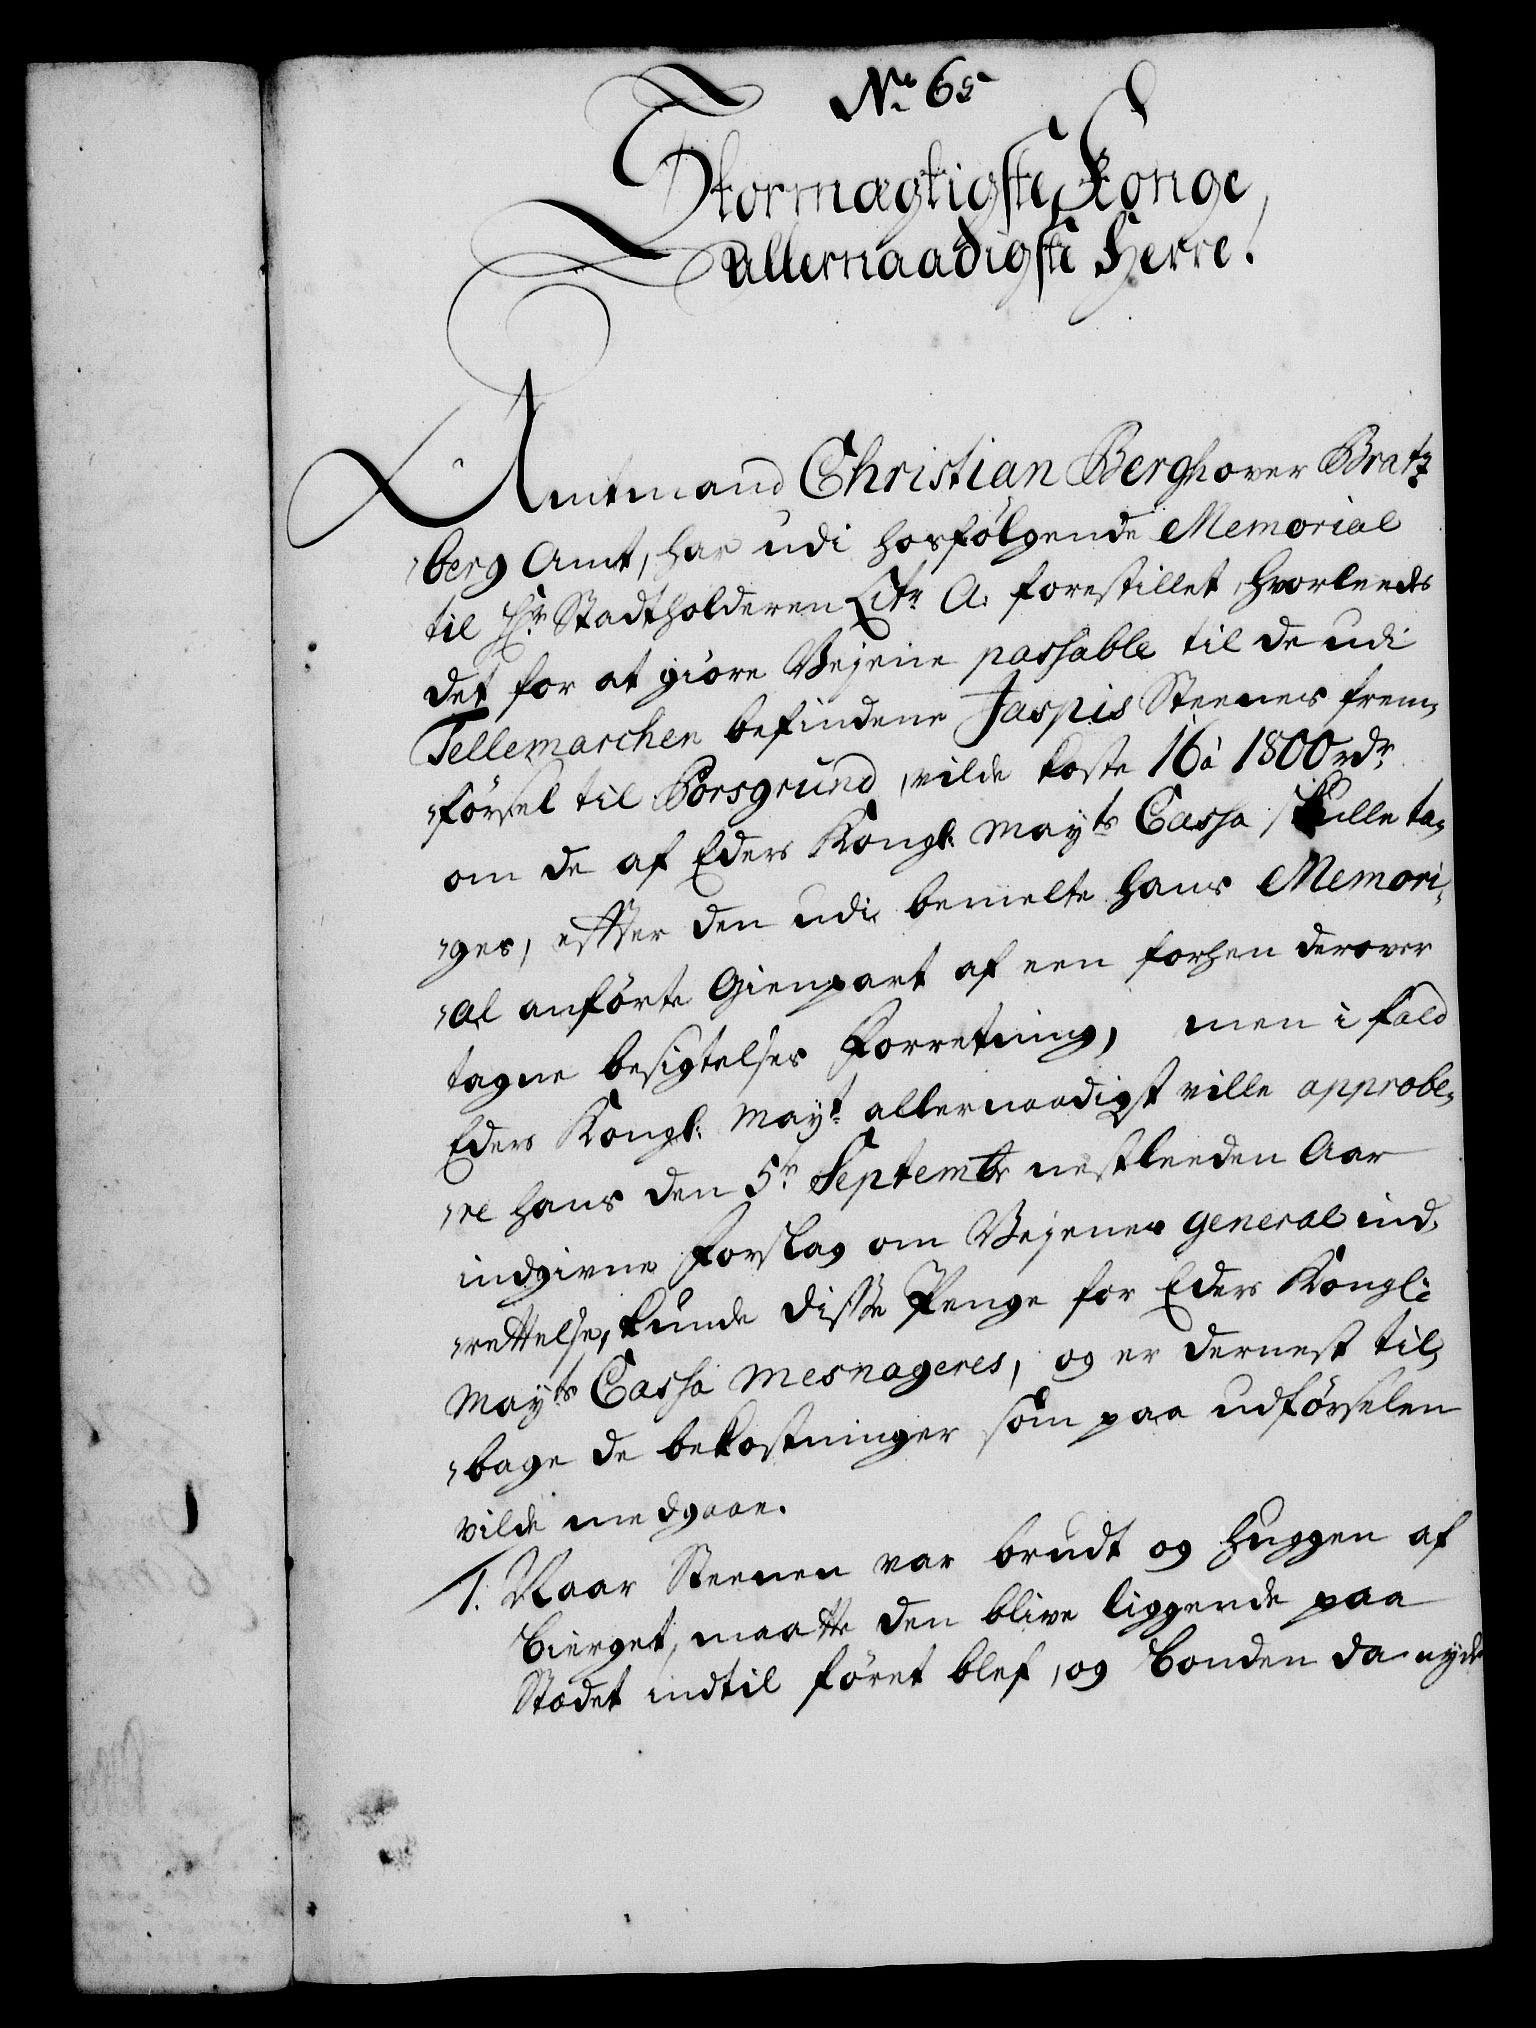 No 65
Stormægtigste Konge,
Allernaadigste Herre!
Amtmand Christian Bergh over Bratz
berg Amt, har udi hosfölgende Memorial
til Hr Stadtholderen Litr A. forestillet, hvorleedes
det for at giöre Vejene passable til de udi
Tellemarchen befindene Jaspis Steenes frem,
försel til Porsgrund, vilde koste 16 à 1800 rdr
om de af Eders Kongl: Mayts Cassa skulle ta,
ges, effter den udi bemelte hans Memori,
al anförte Gienpart af een forhen derover
tagne besigtelses Forretning, men i fald
Eders Kongl: Mayt allernaadigst ville approbe,
re hans den 5te Septembr nestleeden Aar
indgivne Forslag om Vejenes general ind,
rettelse, kunde disse Penge for Eders Kongli
Mayts Cassa mesnageres, og er dernest til,
bage de bekostninger som paa udförselen
vilde medgaae.
1. Naar Steenen var brudt og huggen af
Bierget, maatte den blive liggende paa
Stædet indtil föret blef, og Bonden da nyde